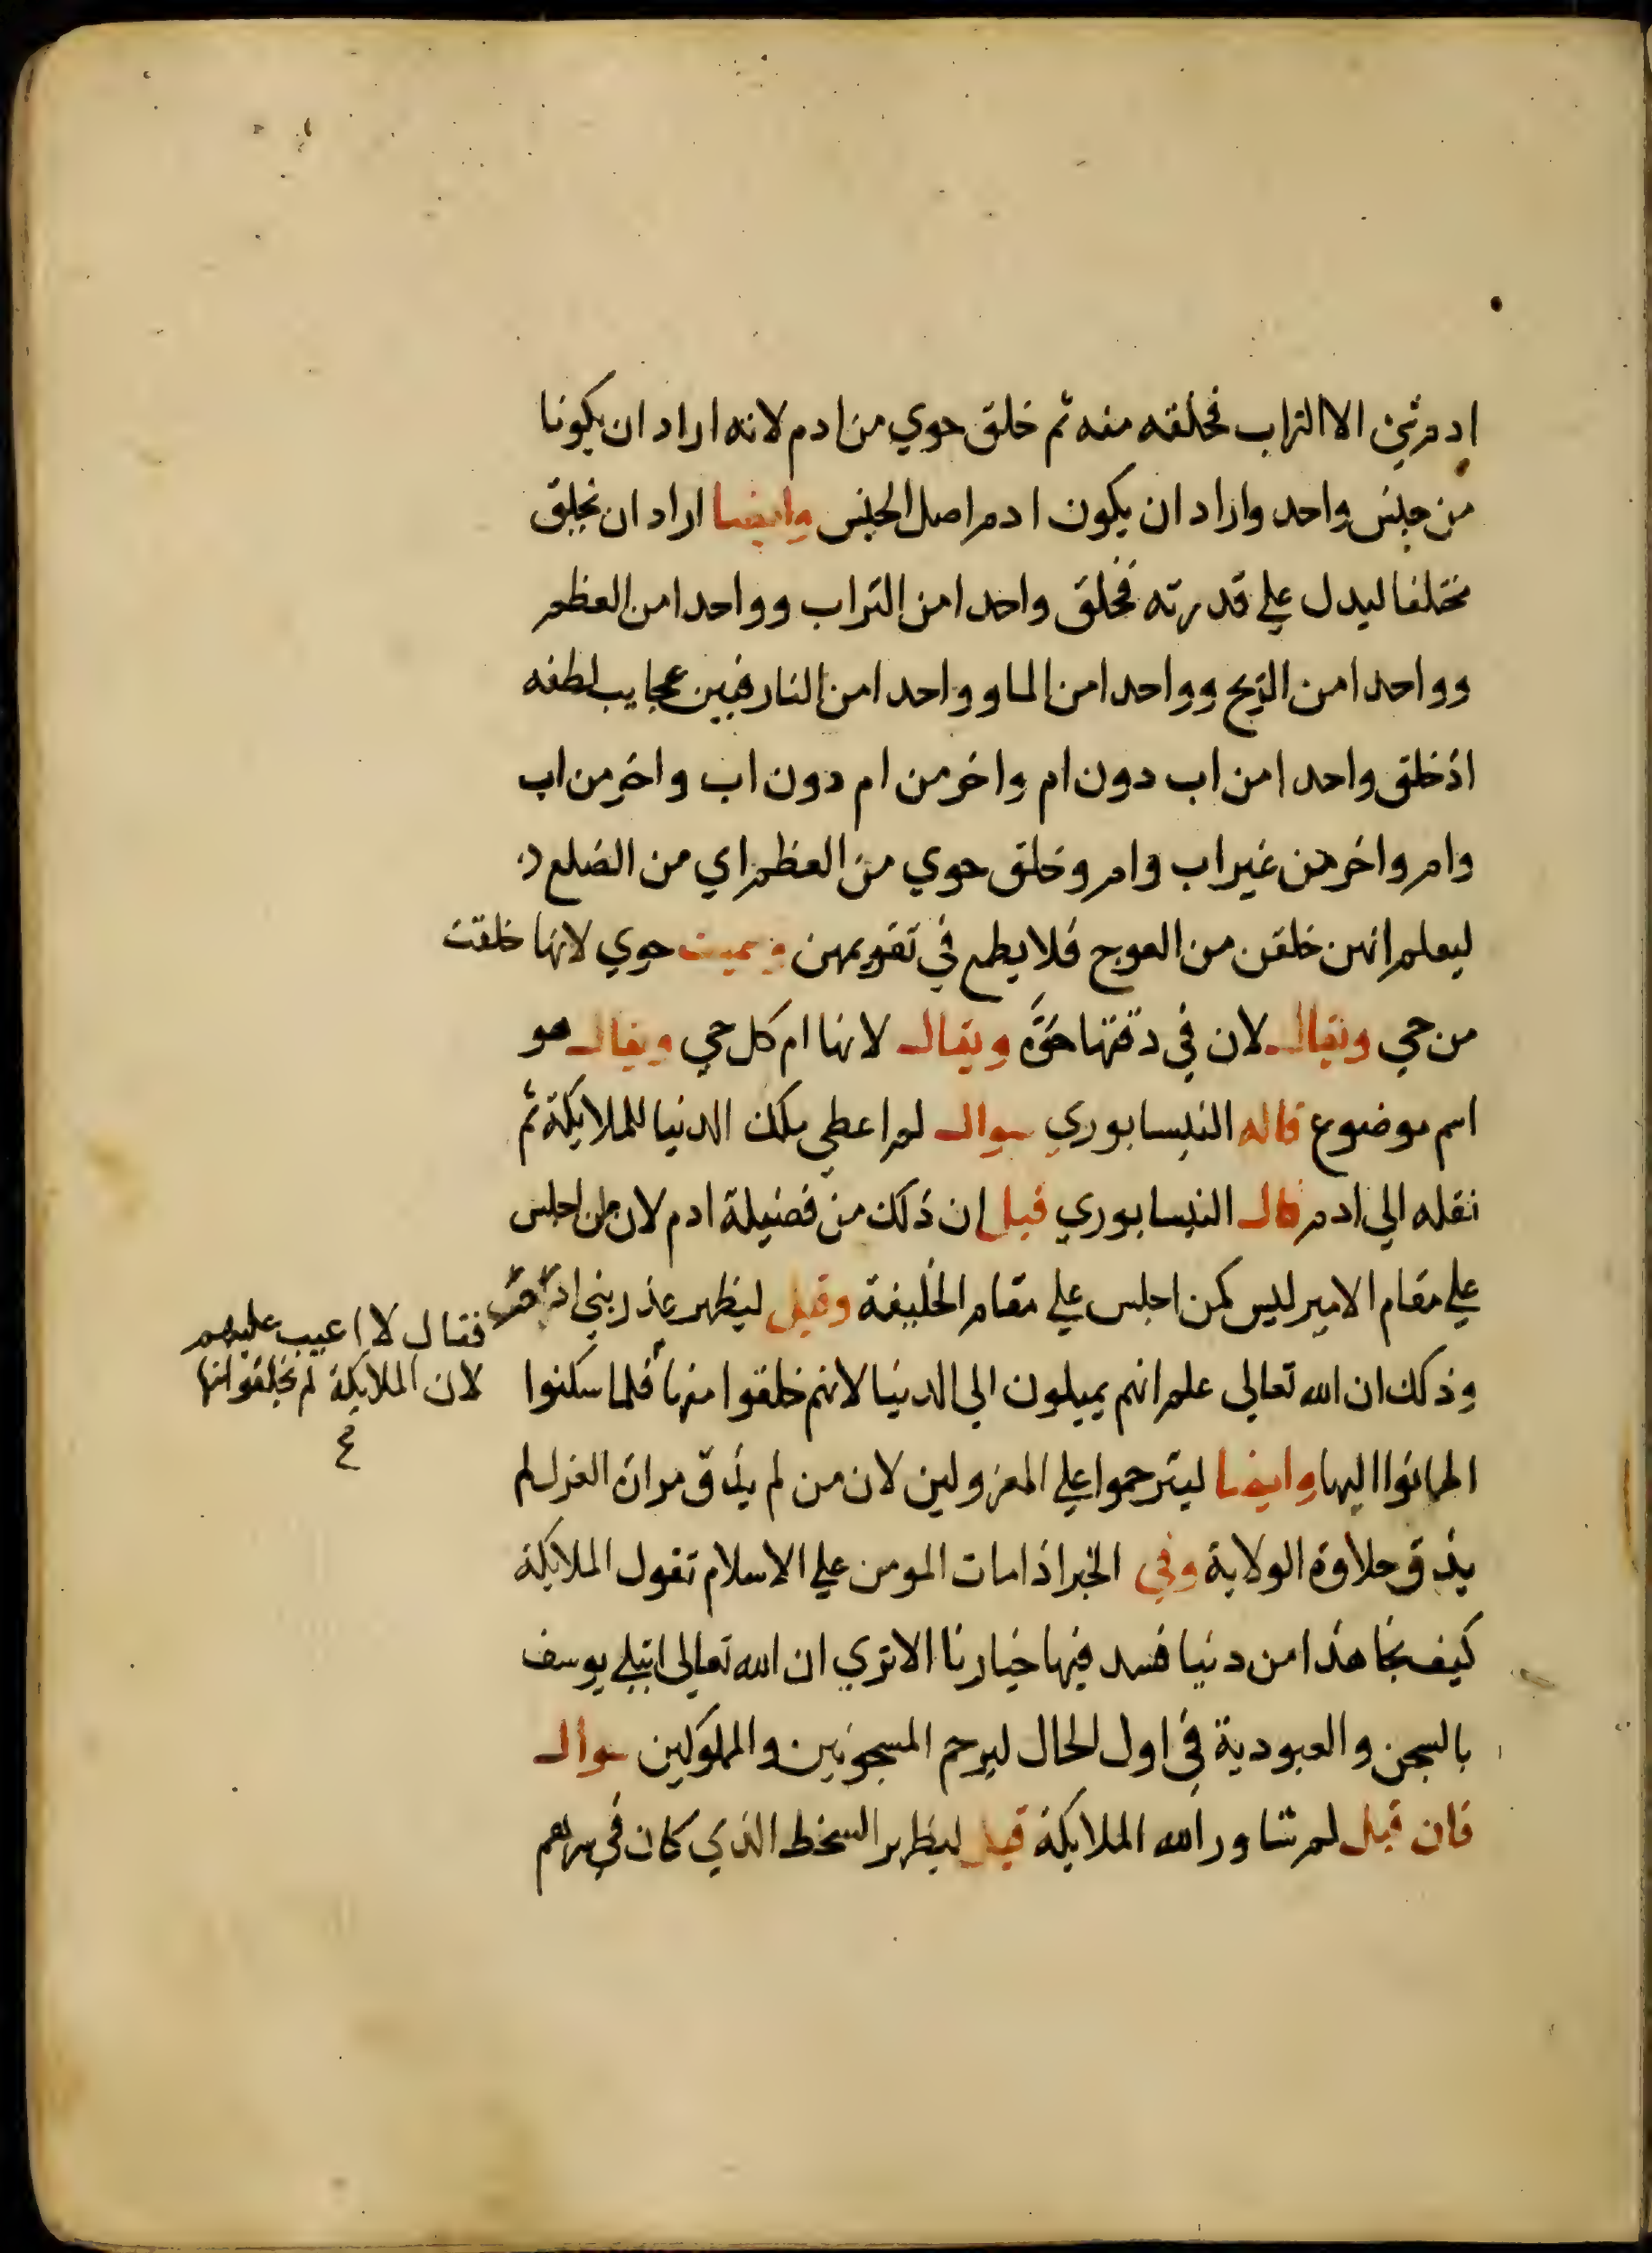 ادم شي الا التراب فخلقه منه ثم خلق حوي من ادم لانه اراد ان يكونا
من جنس واحد واراد ان يكون ادم اصل الجنس وايضا اراد ان يخلق
مختلفا ليدل علي قدرته فخلق واحدا من التراب وواحدا من العظم
وواحدا من الريح وواحدا من الما وواحدا من النار فبين عجايب لطفه
اذ خلق واحدا من اب دون ام واخر من ام دون اب واخر من اب
وام واخر من غير اب وام وخلق حوي من العظم اي من الضلع
ليعلم انهن خلقن من العوج فلا يطمع في تقويمهن وسميت حوي لانها خلقت
من حي ويقال لان في دقنها حوة ويقال لانها ام كل حي ويقال هو
اسم موضوع قاله النيسابوري سوال لم اعطي ملك الدنيا للملايكة ثم
نقله الي ادم قال النيسابوري قيل ان ذلك من فضيلة ادم لان من اجلس
علي مقام الامير ليس كمن اجلس علي مقام الخليفة وقيل ليظهر عذر بني ادم
وذلك ان الله تعالي علم انهم يميلون الي الدنيا لانهم خلقوا منها فلما سكنوا
اطمانوا اليها وايضا ليترحموا علي المعزولين لان من لم يذق مرارة العزل لم
يذق حلاوة الولاية وفي الخبر اذا مات المومن علي الاسلام تقول الملايكة
كيف نجا هذا من دنيا فسد فيها خيارنا الا تري ان الله تعالي ابتلي يوسف
بالسجن والعبودية في اول الحال ليرحم المسجونين والمملوكين سوال
فان قيل لم شاور الله الملايكة قيل ليظهر السخط الذي كان في سرهم
فقال لا اعيب عليهم
لان الملايكة لم يخلقوا منها